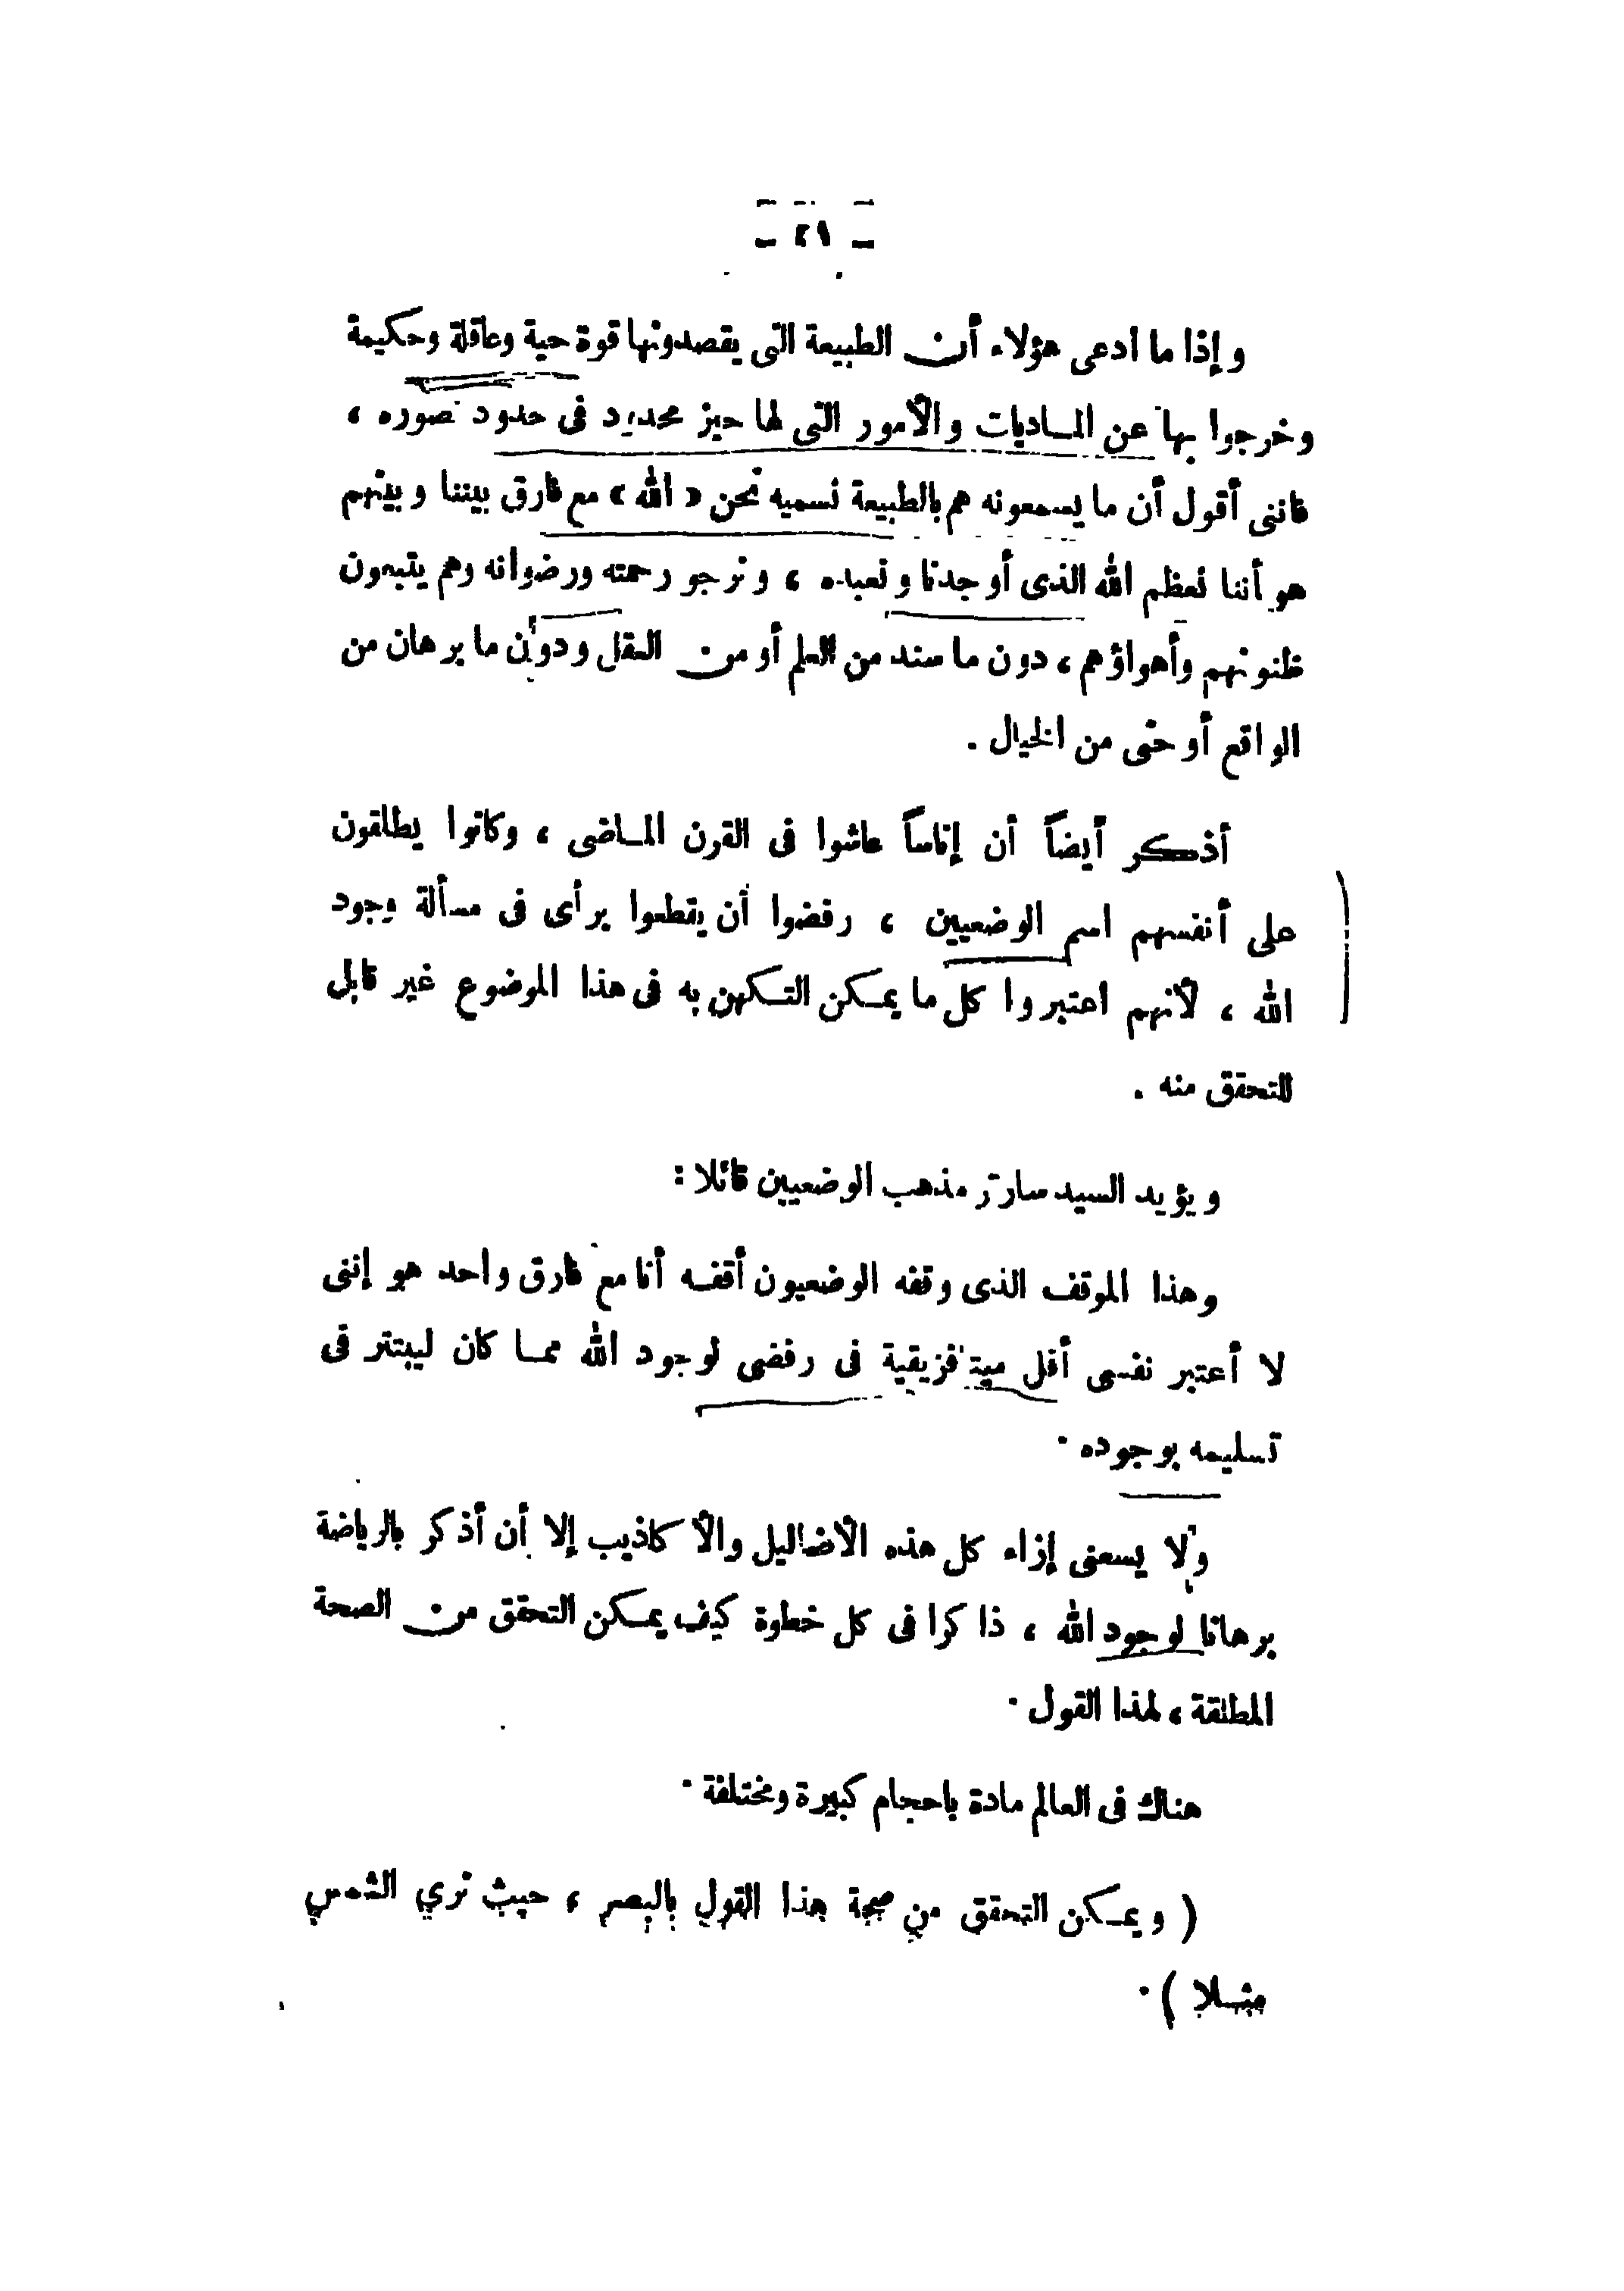 — ٢١ —
وإذا ما ادعى هؤلاء أن الطبيعة التى يقصدونها قوة حية وعاقلة وحكيمة
وخرجوا بها عن المـاديات والأمور التى لها حيز محدود فى حدود تصوره ،
فاننى أقول أن ما يسمعونه هم بالطبيعة نسميه نحن « الله » مع فارق بيننا وبينهم
هو أننا نعظم الله الذى أوجدنا ونعبده ، ونرجو رحمته ورضوانه وهم يتبعون
ظنونهم وأهواؤهم ، دون ما سند من العلم أو من العقل ودون ما برهان من
الواقع أو حتى من الخيال .
أذكر أيضاً أن إناساً عاشوا فى القرن المـاضى ، وكانوا يطلقون
على أنفسهم اسم الوضعيين ، رفضوا أن يقطعوا برأى فى مسألة وجود
الله ، لأنهم اعتبروا كل ما يمـكن التـكهن به فى هذا الموضوع غير قابل
للتحقق منه .
ويؤيد السيد سارتر مذهب الوضعيين قائلا :
وهذا الموقف الذى وقفه الوضعيون أقفـه أنا مع فارق واحد هو إننى
لا أعتبر نفسى أقل ميتافزيقية فى رفضى لوجود الله ممـا كان ليبتتر فى
تسليمه بوجوده .
ولا يسعنى إزاء كل هذه الأضاليل والأكاذيب إلا أن أذكر بالرياضة
برهانا لوجود الله ، ذاكرا فى كل خطوة كيف يمـكن التحقق من الصحة
المطلقة ، لهذا القول .
هناك فى العالم مادة باحجام كبيرة ومختلفة .
( ويمـكن التحقق من صحة هذا القول بالبصر ، حيث نري الشمس
مثـلا ) .